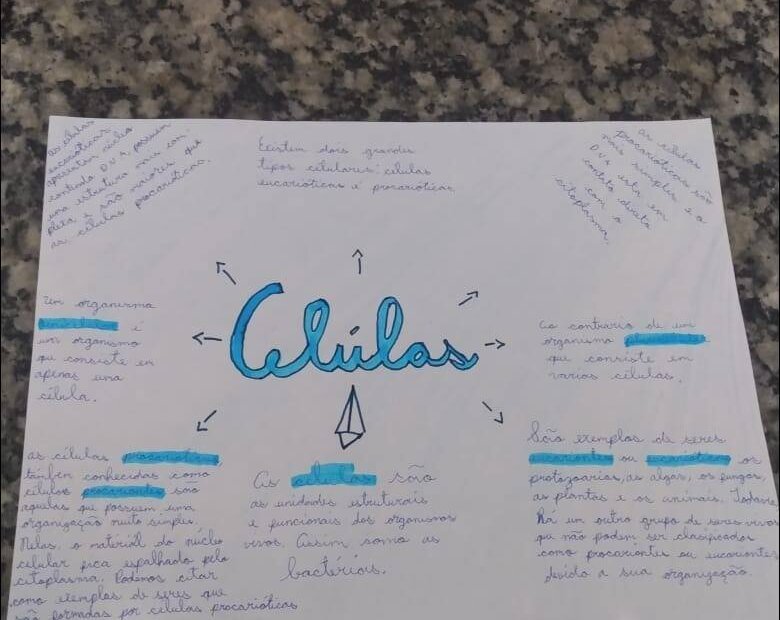 as células
eucarióticas
apresentam núcleo
contendo DNA, possuem
uma estrutura mais com-
pleta e são maiores que
as células procarióticas.
Existem dois grandes
tipos celulares: células
eucarióticas e procarióticas.
as células
procarióticas são
mais simples e o
DNA está em
contato direto
com o
citoplasma.
Células
Um organismo
unicelular é
um organismo
que consiste em
apenas uma
célula.
Ao contrário de um
organismo pluricelular
que consiste em
várias células.
as células procarióticas,
também conhecidas como
células procariontes são
aquelas que possuem uma
organização muito simples.
Nelas, o material do núcleo
celular fica espalhado pelo
citoplasma. Podemos citar
como exemplos de seres que
são formadas por células procarióticas
As células são
as unidades estruturais
e funcionais dos organismos
vivos. Assim como as
bactérias.
São exemplos de seres
eucariontes ou eucarióticos os
protozoários, as algas, os fungos,
as plantas e os animais. Todavia
Há um outro grupo de seres vivos
que não podem ser classificados
como procariontes ou eucariontes
devido a sua organização.